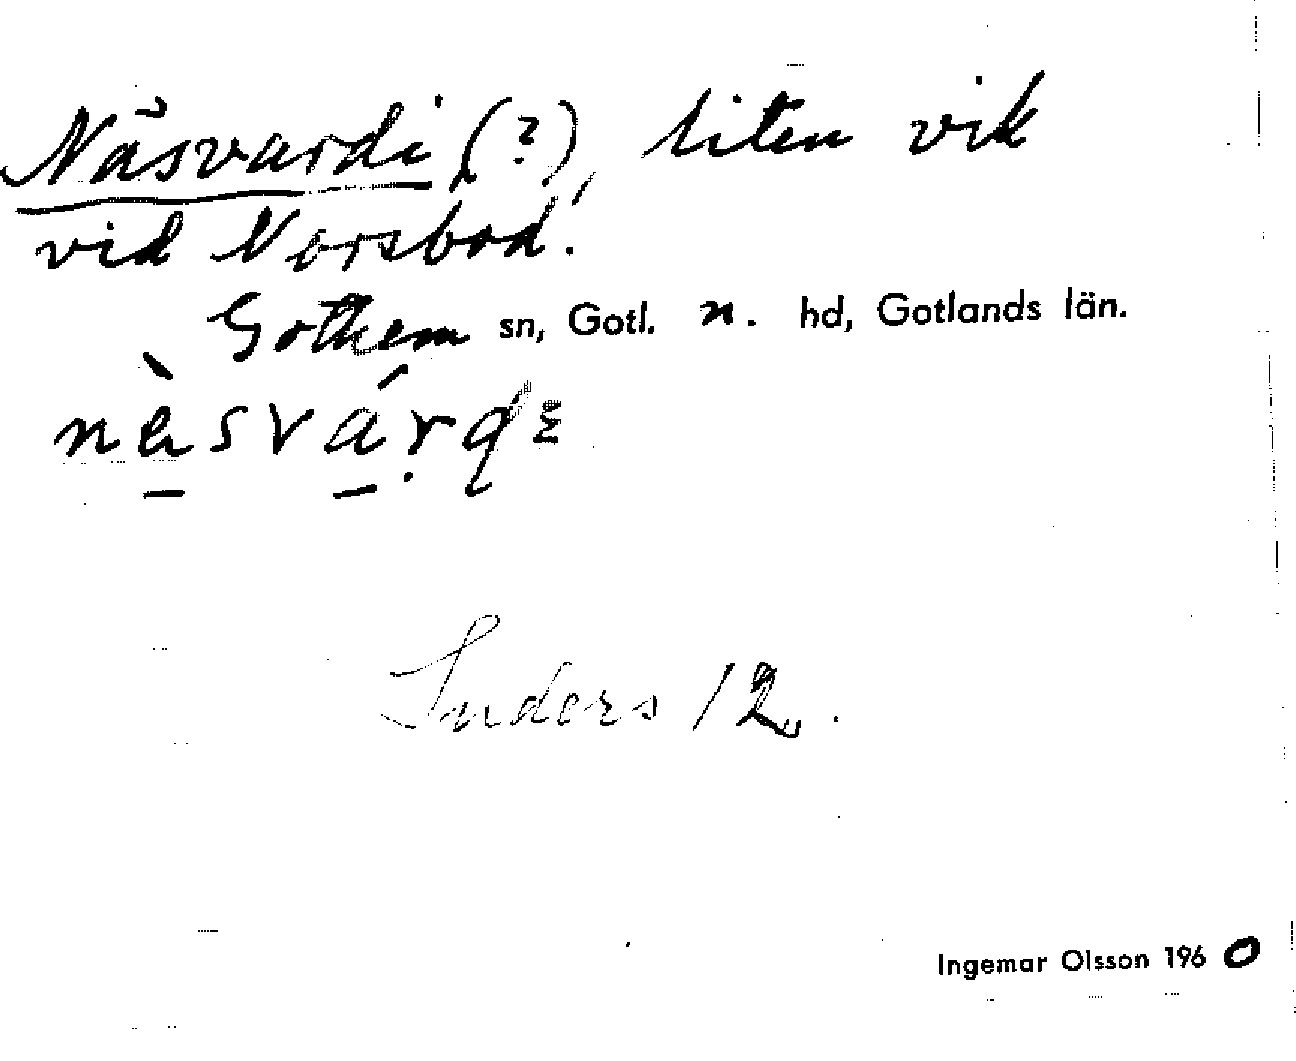 Näsvardi (?), liten vik
vid Norsbod.
Gothem sn, Gotl. n. hd, Gotlands län.
Suders /2.
Ingemar Olsson 1960